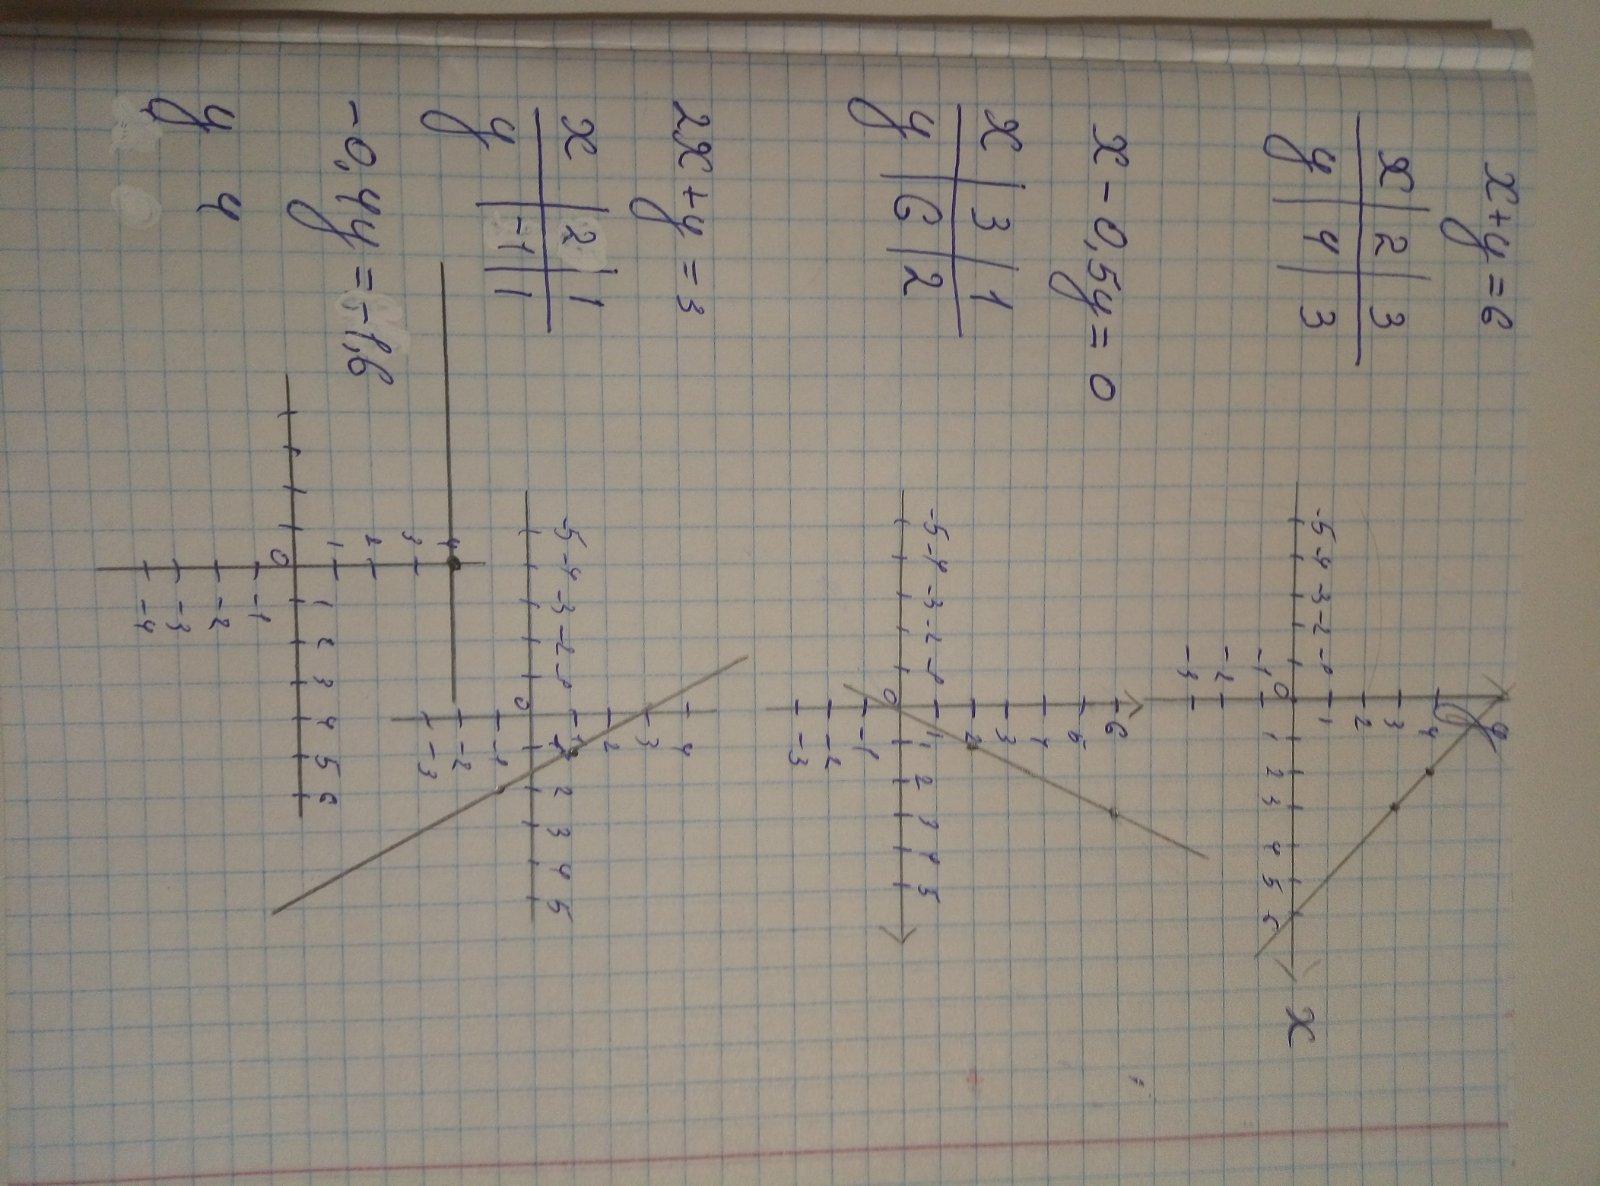 x + y = 6
x | 2 | 3
y | 4 | 3
y
4
3
2
1
-5 -4 -3 -2 -1 0 1 2 3 4 5 6
x
-1
-2
-3
x - 0,5y = 0
x | 3 | 1
y | 6 | 2
6
5
4
3
2
1
-5 -4 -3 -2 -1 0 1 2 3 4 5
-1
-2
-3
2x + y = 3
x | 2 | 1
y | -1 | 1
4
3
2
1
-5 -4 -3 -2 -1 0 1 2 3 4 5
-1
-2
-3
-0,4y = -1,6
y 4
4
3
2
1
0 1 2 3 4 5 6
-1
-2
-3
-4